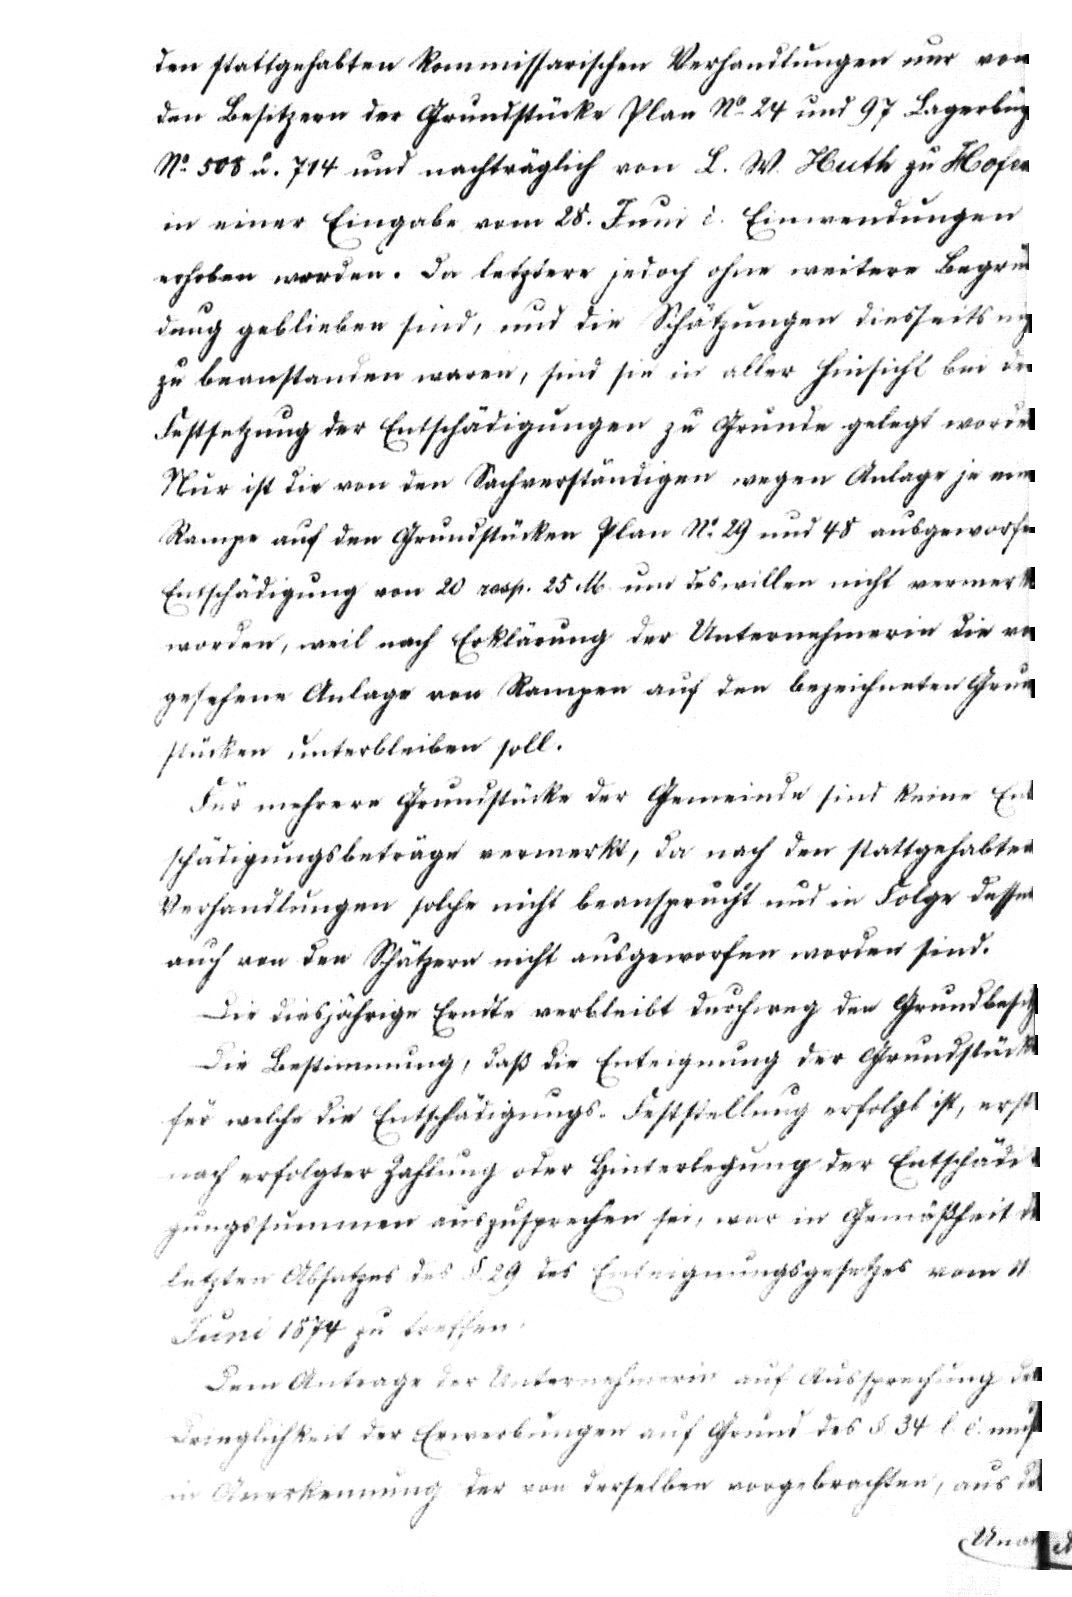 den stattgehabten kommissarischen Verhandlungen nur von
den Besitzern der Grundstücke Plan No. 24 und 97 Lagerbuch
No. 508 u. 714 und nachträglich von L. W. Huth zu Hofen
in einer Eingabe vom 28. Juni c. Einwendungen
erhoben worden. Da letztere jedoch ohne weitere Begrün
dung geblieben sind, und die Schätzungen diesseits nicht
zu beanstanden waren, sind sie in aller Hinsicht bei der
Festsetzung der Entschädigungen zu Grunde gelegt worden
Nur ist die von den Sachverständigen wegen Anlage je einer
Rampe auf den Grundstücken Plan No. 29 und 48 ausgeworfene
Entschädigung von 20 resp. 25 M. um deswillen nicht vermerkt
worden, weil nach Erklärung der Unternehmerin die vor
gesehene Anlage von Rampen auf den bezeichneten Grund
stücken unterbleiben soll.
Für mehrere Grundstücke der Gemeinde sind keine Ent
schädigungsbeträge vermerkt, da nach den stattgehabten
Verhandlungen solche nicht beansprucht und in Folge dessen
auch von den Schätzern nicht ausgeworfen worden sind.
Die diesjährige Erndte verbleibt durchweg den Grundbesitz
Die Bestimmung, daß die Enteignung der Grundstücke
für welche die Entschädigungs-Feststellung erfolgt ist, erst
nach erfolgter Zahlung oder Hinterlegung der Entschädi
gungssummen auszusprechen sei, war in Gemäßheit des
letzten Absatzes des §. 29 des Enteignungsgesetzes vom 11.
Juni 1874 zu treffen.
Dem Antrage der Unternehmerin auf Aussprechung der
Dringlichkeit der Erwerbungen auf Grund des §. 34 l. c. mußte
in Anerkennung der von derselben vorgebrachten, aus den